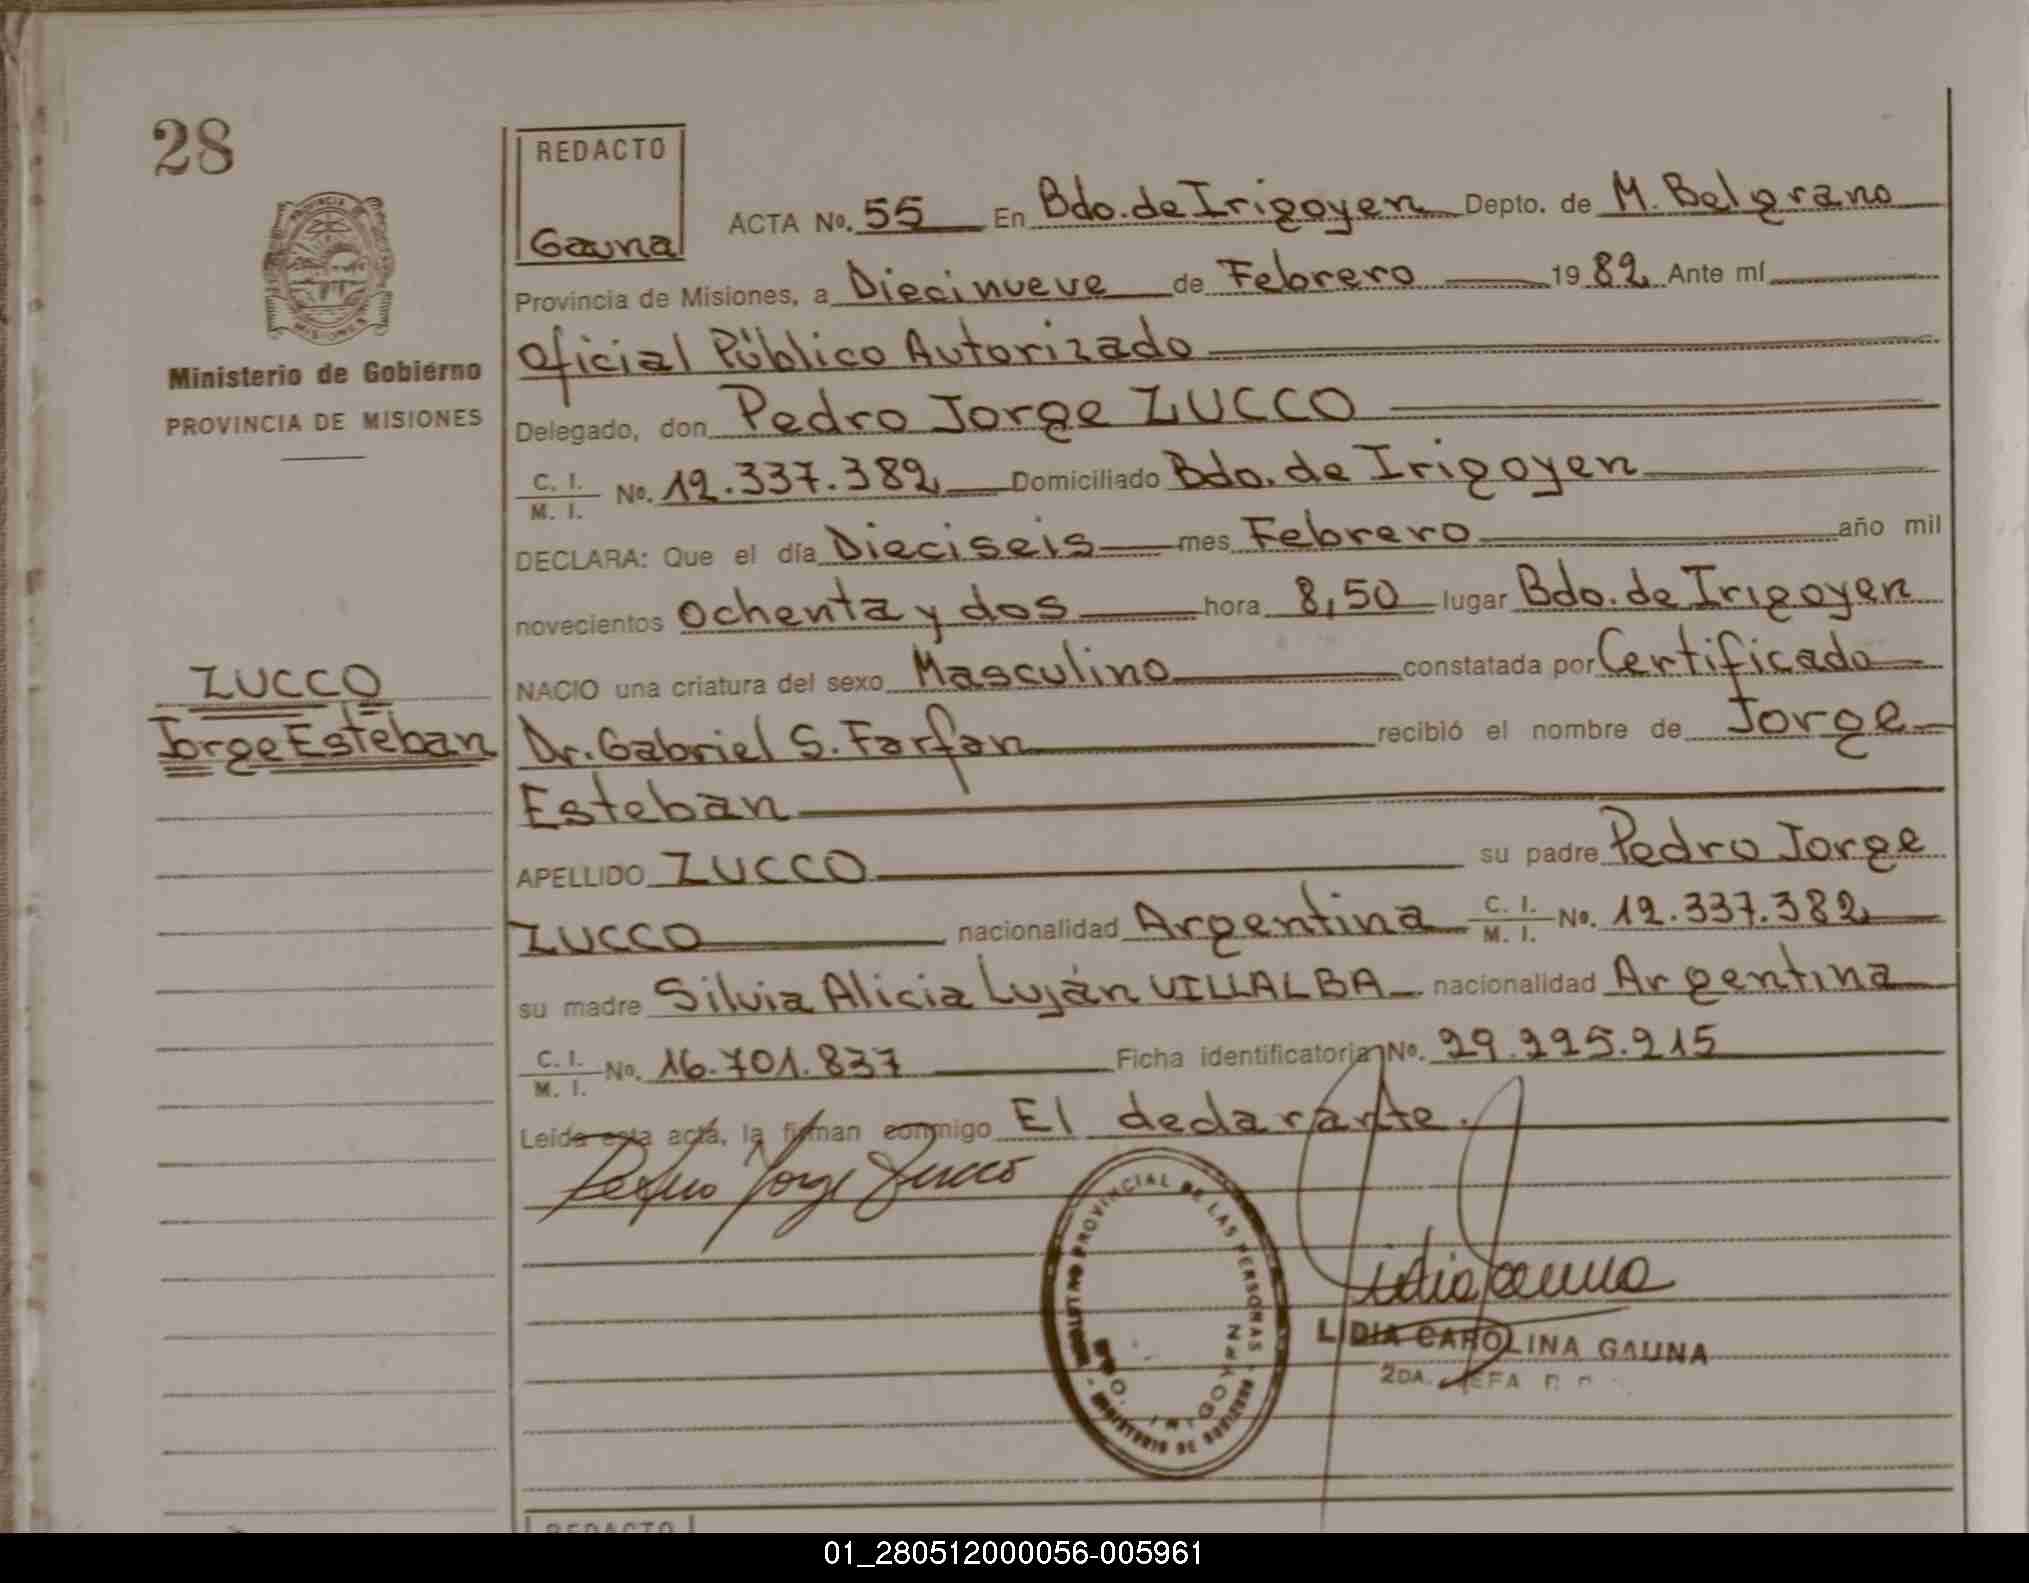 28
REDACTO
Gauna
ACTA No. 55 En Bdo. de Irigoyen Depto. de M. Belgrano
Provincia de Misiones, a Diecinueve de Febrero 1982 Ante mí
Oficial Público Autorizado
Delegado, don Pedro Jorge ZUCCO
C. I. / M. I. No. 12.337.382 Domiciliado Bdo. de Irigoyen
DECLARA: Que el día Dieciseis mes Febrero año mil
novecientos Ochenta y dos hora 8,50 lugar Bdo. de Irigoyen
NACIO una criatura del sexo Masculino constatada por Certificado
Dr. Gabriel S. Farfan recibió el nombre de Jorge
Esteban
APELLIDO ZUCCO su padre Pedro Jorge
ZUCCO nacionalidad Argentina C. I. / M. I. No. 12.337.382
su madre Silvia Alicia Luján VILLALBA nacionalidad Argentina
C. I. / M. I. No. 16.701.837 Ficha identificatoria No. 29.225.215
Leida esta acta, la firman conmigo El declarante.
Pedro Jorge Zucco
Lidia Gauna
LIDIA CAROLINA GAUNA
2DA. JEFA
PROVINCIAL DE LAS PERSONAS
MINISTERIO DE GOBIERNO
BDO. IRIGOYEN
PROVINCIA DE
MISIONES
Ministerio de Gobierno
PROVINCIA DE MISIONES
ZUCCO
Jorge Esteban
REDACTO
01_280512000056-005961